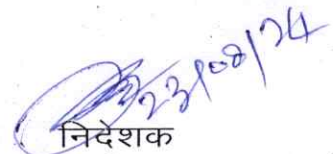 23/08/24
निदेशक